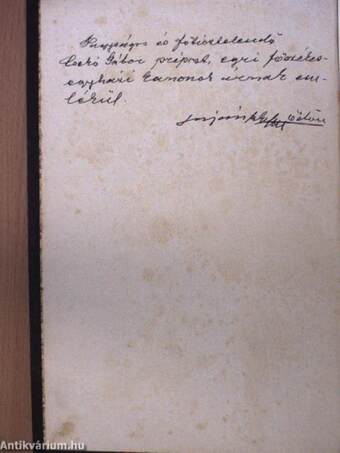 Nagyságos és főtisztelendő
Gábor prépost, egri főszékes-
egyházi kanonok urnak em-
lékül.
Ödön
Antikvárium.hu